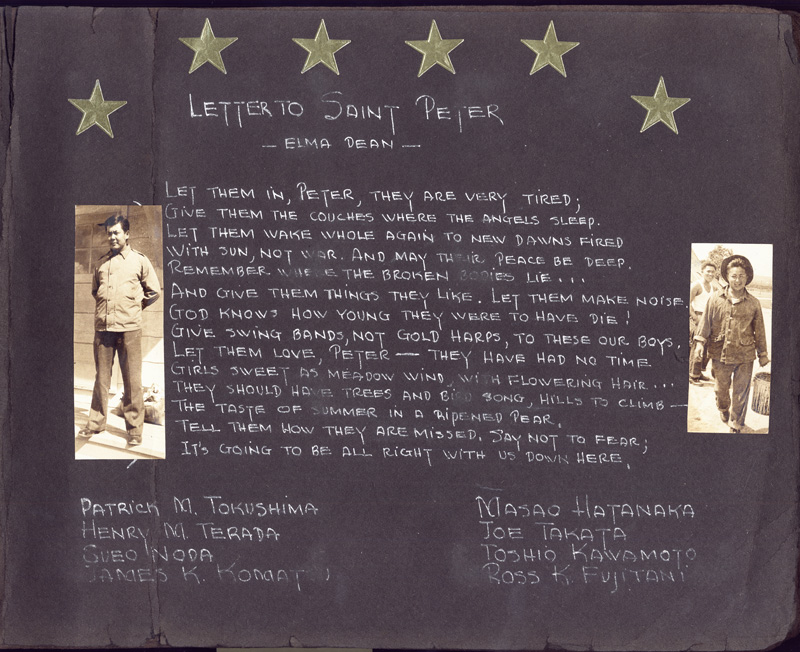 LETTER TO SAINT PETER
— ELMA DEAN —
LET THEM IN, PETER, THEY ARE VERY TIRED;
GIVE THEM THE COUCHES WHERE THE ANGELS SLEEP.
LET THEM WAKE WHOLE AGAIN TO NEW DAWNS FIRED
WITH SUN, NOT WAR. AND MAY THEIR PEACE BE DEEP.
REMEMBER WHERE THE BROKEN BODIES LIE...
AND GIVE THEM THINGS THEY LIKE. LET THEM MAKE NOISE.
GOD KNOWS HOW YOUNG THEY WERE TO HAVE DIE!
GIVE SWING BANDS, NOT GOLD HARPS, TO THESE OUR BOYS.
LET THEM LOVE, PETER — THEY HAVE HAD NO TIME
GIRLS SWEET AS MEADOW WIND, WITH FLOWERING HAIR...
THEY SHOULD HAVE TREES AND BIRD SONG, HILLS TO CLIMB —
THE TASTE OF SUMMER IN A RIPENED PEAR.
TELL THEM HOW THEY ARE MISSED. SAY NOT TO FEAR;
IT'S GOING TO BE ALL RIGHT WITH US DOWN HERE.
PATRICK M. TOKUSHIMA
HENRY M. TERADA
SUEO NODA
JAMES K.
MASAO HATANAKA
JOE TAKATA
TOSHIO KAWAMOTO
ROSS K. FUJITANI